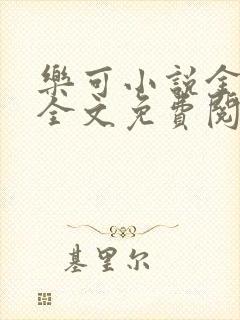 樂可小説全
全文免費閱
基里尔